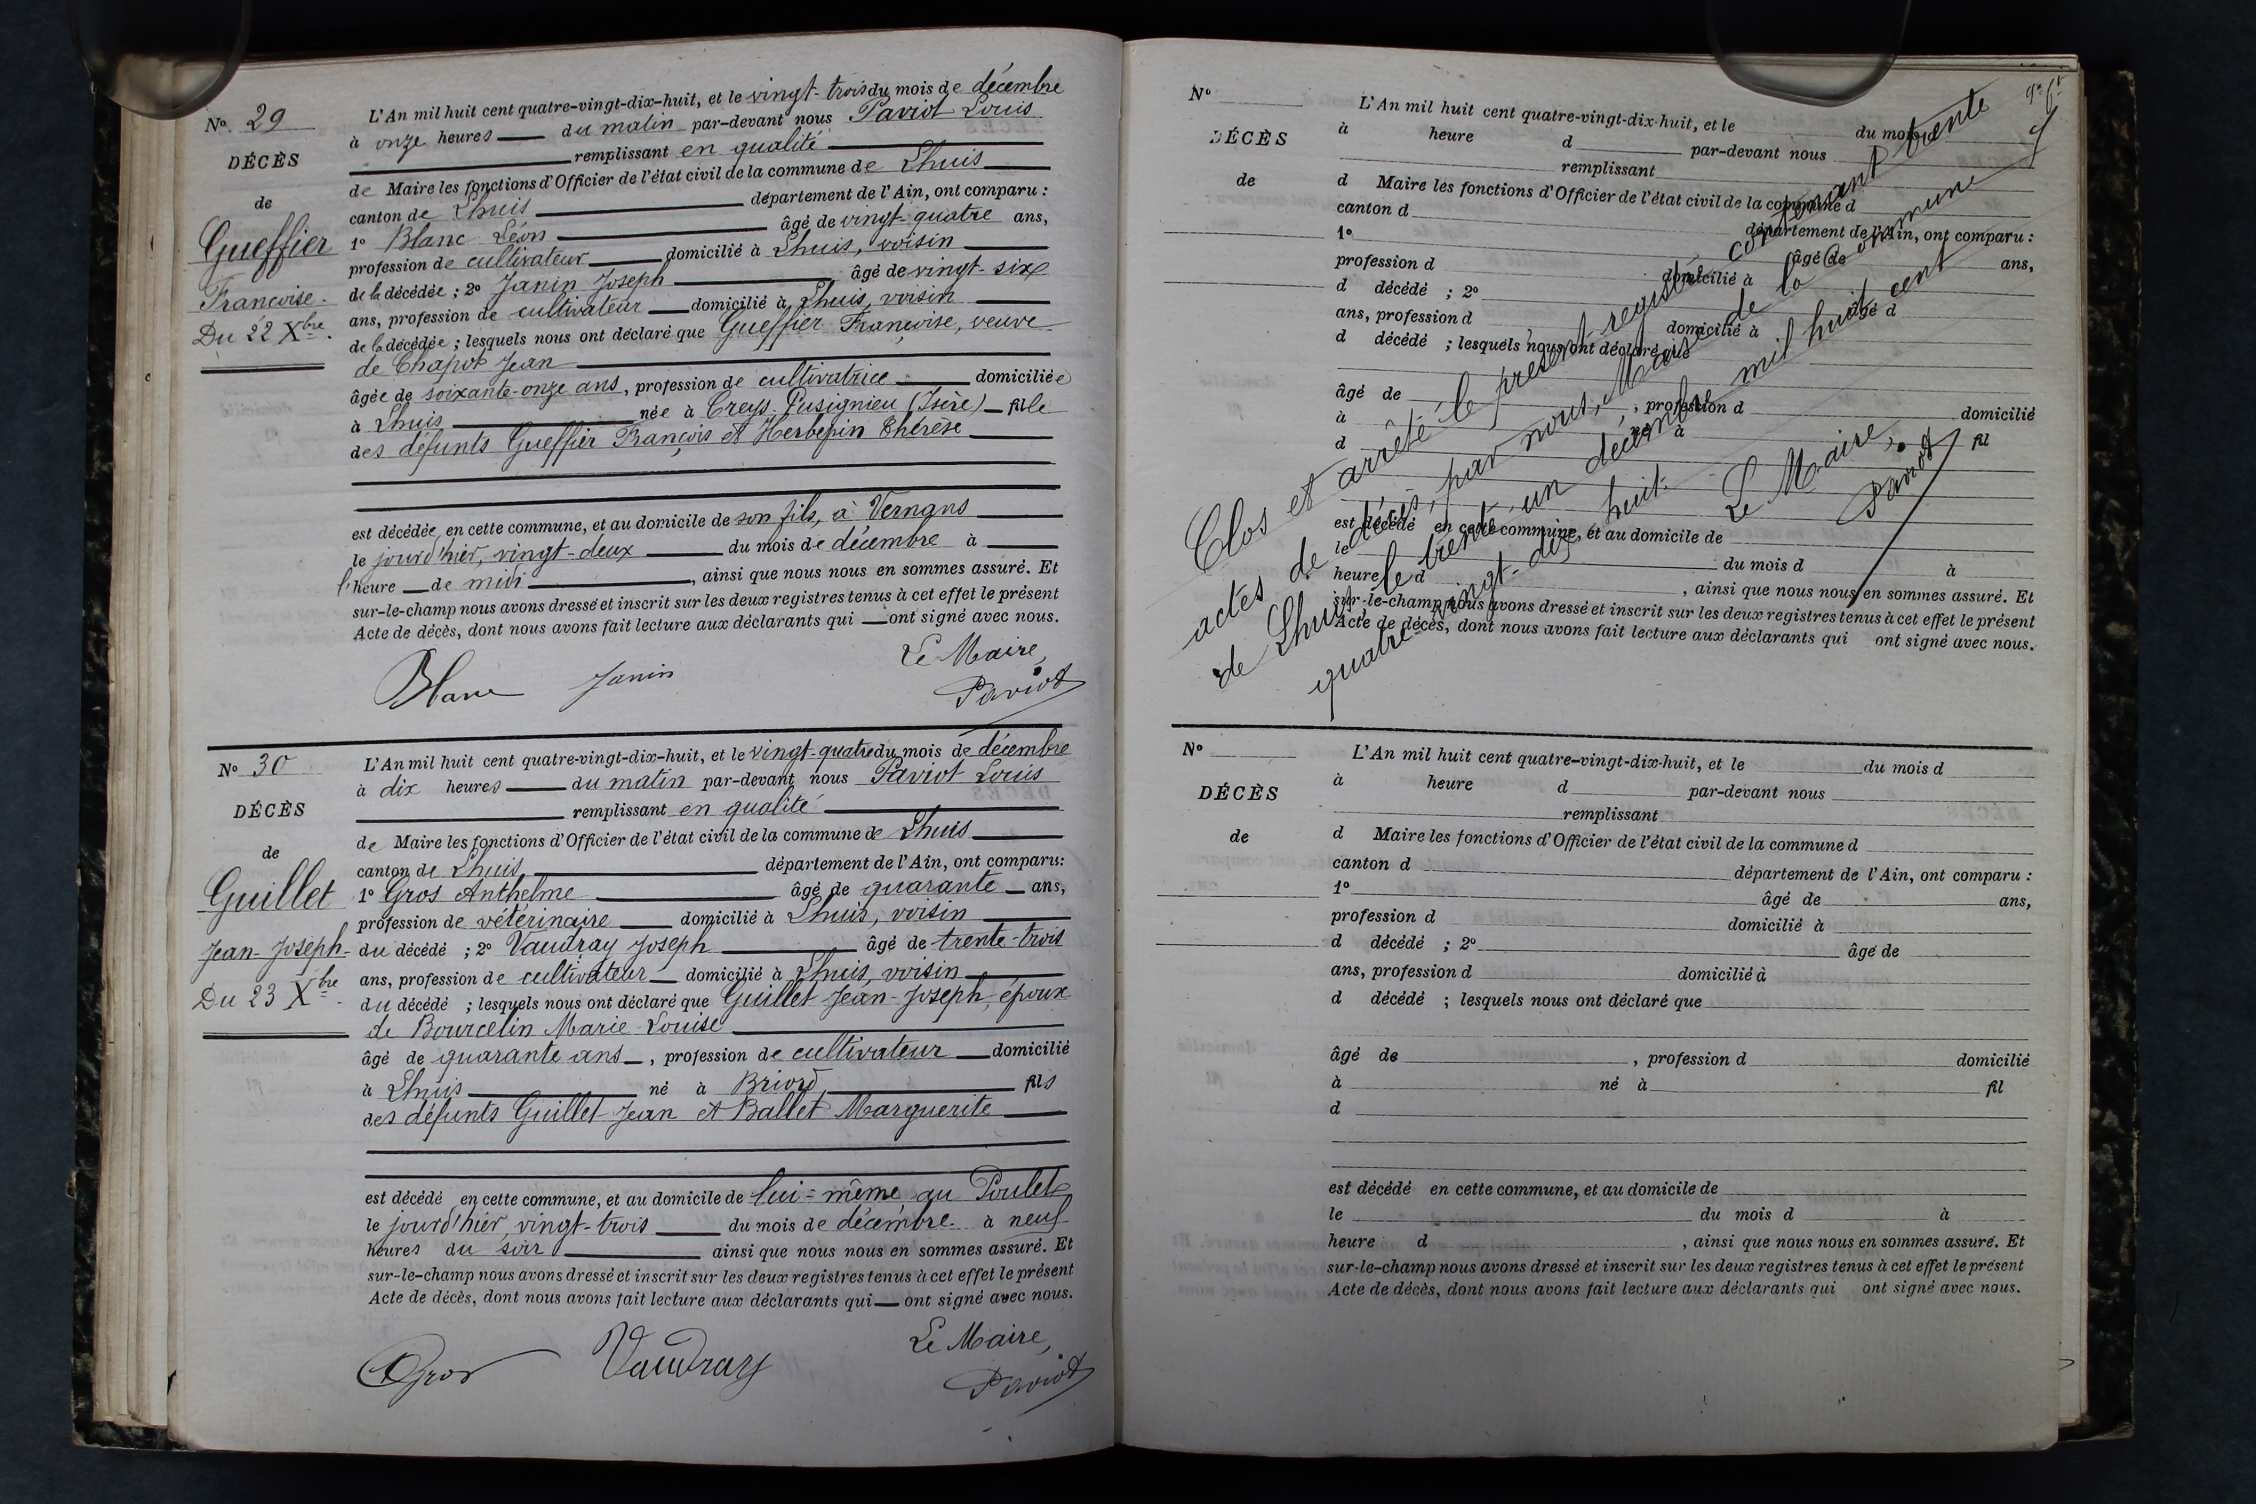 No. 29
DÉCÈS
de
Gueffier
Françoise.
Du 22 Xbre.
L'An mil huit cent quatre-vingt-dix-huit, et le vingt-trois du mois de décembre
à onze heures du matin par-devant nous Paviot Louis
remplissant en qualité
de Maire les fonctions d'Officier de l'état civil de la commune de Lhuis
canton de Lhuis département de l'Ain, ont comparu :
1º Blanc Léon âgé de vingt-quatre ans,
profession de cultivateur domicilié à Lhuis, voisin
de la décédée ; 2º Janin Joseph âgé de vingt-six
ans, profession de cultivateur domicilié à Lhuis, voisin
de la décédée ; lesquels nous ont déclaré que Gueffier Françoise, veuve
de Chapot Jean
âgée de soixante-onze ans, profession de cultivatrice domiciliée
à Lhuis née à Creys-Pusignieu (Isère) fille
des défunts Gueffier François et Herbepin Thérèse
est décédée en cette commune, et au domicile de son fils, à Vernans
le jourd'hier, vingt-deux du mois de décembre à
l'heure de midi, ainsi que nous nous en sommes assuré. Et
sur-le-champ nous avons dressé et inscrit sur les deux registres tenus à cet effet le présent
Acte de décès, dont nous avons fait lecture aux déclarants qui ont signé avec nous.
Le Maire,
Blanc Janin Paviot
No 30
DÉCÈS
de
Guillet
Jean-Joseph-
Du 23 Xbre.
L'An mil huit cent quatre-vingt-dix-huit, et le vingt-quatre du mois de décembre
à dix heures du matin par-devant nous Paviot Louis
remplissant en qualité
de Maire les fonctions d'Officier de l'état civil de la commune de Lhuis
canton de Lhuis département de l'Ain, ont comparu:
1º Gros Anthelme âgé de quarante ans,
profession de vétérinaire domicilié à Lhuis, voisin
du décédé ; 2º Vaudray Joseph âgé de trente-trois
ans, profession de cultivateur domicilié à Lhuis, voisin
du décédé ; lesquels nous ont déclaré que Guillet Jean-Joseph, époux
de Bourcelin Marie-Louise
âgé de quarante ans, profession de cultivateur domicilié
à Lhuis né à Briord fils
des défunts Guillet Jean et Ballet Marguerite
est décédé en cette commune, et au domicile de lui-même au Poulet
le jourd'hier, vingt-trois du mois de décembre à neuf
heures du soir ainsi que nous nous en sommes assuré. Et
sur-le-champ nous avons dressé et inscrit sur les deux registres tenus à cet effet le présent
Acte de décès, dont nous avons fait lecture aux déclarants qui ont signé avec nous.
Le Maire,
Gros Vaudray Paviot
No
DÉCÈS
de
L'An mil huit cent quatre-vingt-dix-huit, et le du mois d
à heure d par-devant nous
remplissant
d Maire les fonctions d'Officier de l'état civil de la commune d
canton d département de l'Ain, ont comparu :
1º âgé de ans,
profession d domicilié à
d décédé ; 2º âgé d
ans, profession d domicilié à
d décédé ; lesquels nous ont déclaré que
âgé de , profession d domicilié
à né à fil
d
est décédé en cette commune, et au domicile de
le du mois d à
heure d , ainsi que nous nous en sommes assuré. Et
sur-le-champ nous avons dressé et inscrit sur les deux registres tenus à cet effet le présent
Acte de décès, dont nous avons fait lecture aux déclarants qui ont signé avec nous.
Clos et arrêté le présent registre contenant trente
actes de décès, par nous, Maire de la commune
de Lhuis le trente-un décembre mil huit cent
quatre-vingt-dix huit.
Le Maire,
Paviot
No
DÉCÈS
de
L'An mil huit cent quatre-vingt-dix-huit, et le du mois d
à heure d par-devant nous
remplissant
d Maire les fonctions d'Officier de l'état civil de la commune d
canton d département de l'Ain, ont comparu :
1º âgé de ans,
profession d domicilié à
d décédé ; 2º âgé de
ans, profession d domicilié à
d décédé ; lesquels nous ont déclaré que
âgé de , profession d domicilié
à né à fil
d
est décédé en cette commune, et au domicile de
le du mois d à
heure d , ainsi que nous nous en sommes assuré. Et
sur-le-champ nous avons dressé et inscrit sur les deux registres tenus à cet effet le présent
Acte de décès, dont nous avons fait lecture aux déclarants qui ont signé avec nous.